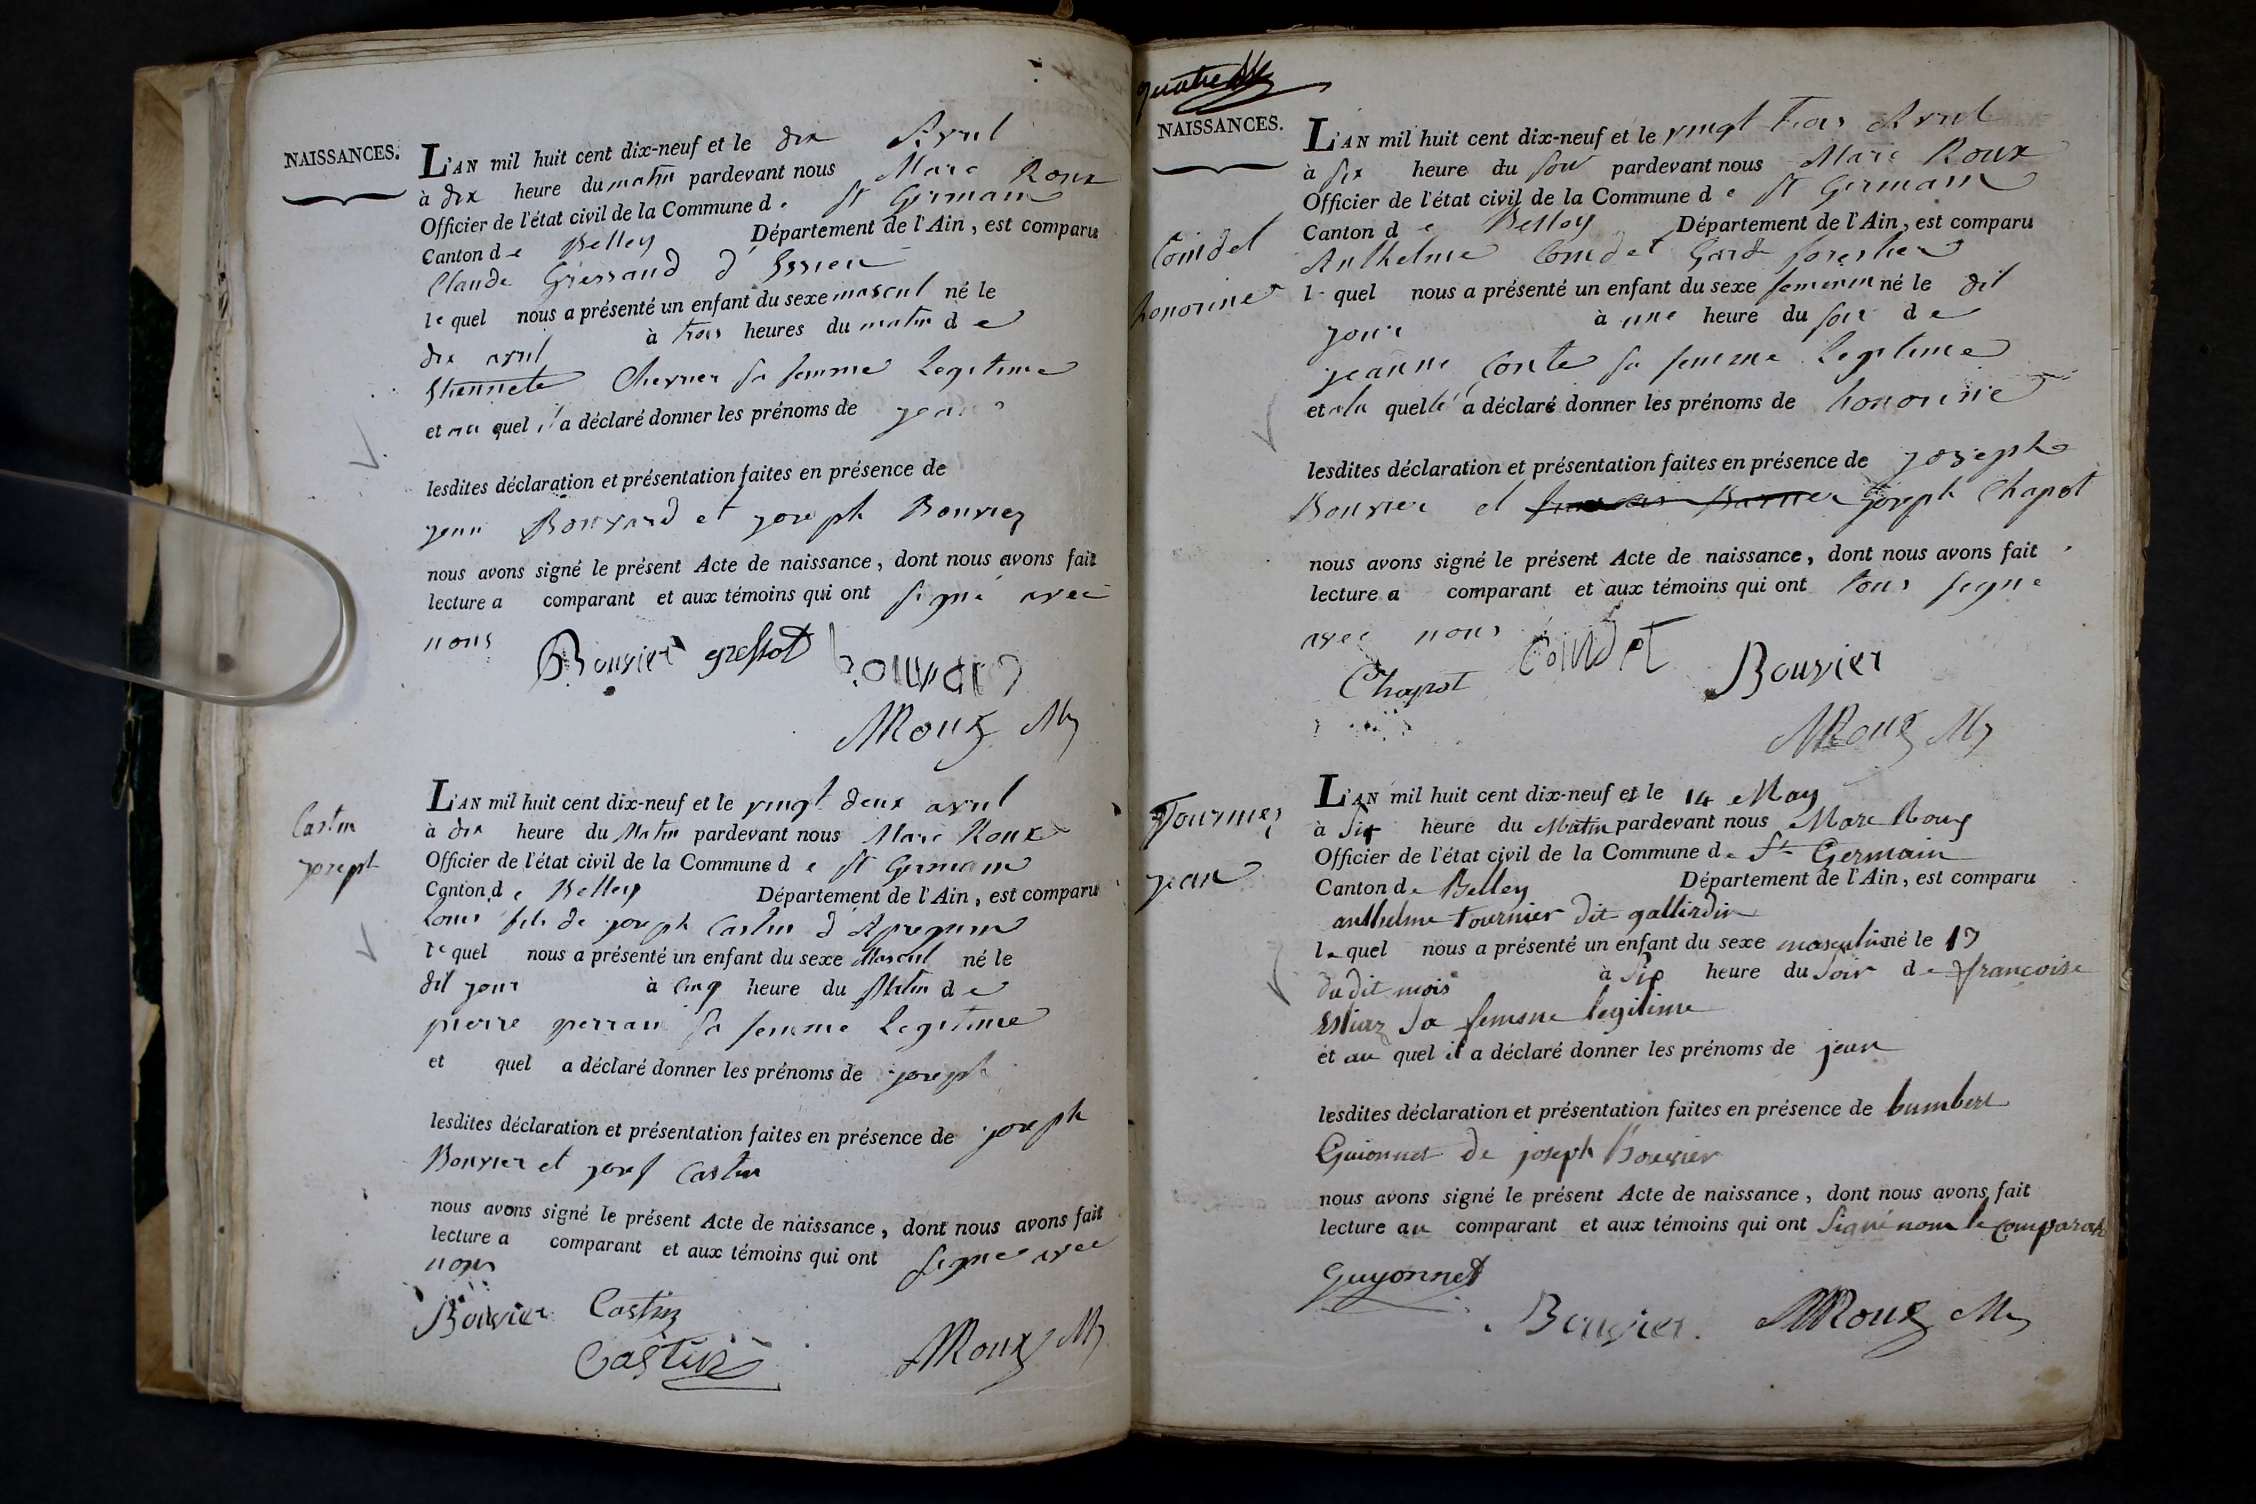 NAISSANCES.
L'AN mil huit cent dix-neuf et le dix Avril
à dix heure du matin pardevant nous Marc Roux
Officier de l'état civil de la Commune d e St Germain
Canton d e Belley Département de l'Ain, est comparu
Claude d'Essieu
le quel nous a présenté un enfant du sexe mascul né le
dix avril à trois heures du matin d e
Etiennete Chevrier sa femme Legitime
et au quel il a déclaré donner les prénoms de jean
lesdites déclaration et présentation faites en présence de
jean Bouvard et joseph Bouvier
nous avons signé le présent Acte de naissance, dont nous avons fait
lecture a comparant et aux témoins qui ont signé avec
nous
Bouvier bouvard
MRoux
Castin
joseph
L'AN mil huit cent dix-neuf et le vingt deux avril
à dix heure du Matin pardevant nous Marc Roux
Officier de l'état civil de la Commune d e St Germain
Canton d e Belley Département de l'Ain, est comparu
Louis fils de joseph Castin d'Apregnin
le quel nous a présenté un enfant du sexe Mascul né le
dit jour à cinq heure du Matin d e
pierre perran sa femme Legitime
et quel a déclaré donner les prénoms de joseph
lesdites déclaration et présentation faites en présence de joseph
Bouvier et josef Castin
nous avons signé le présent Acte de naissance, dont nous avons fait
lecture a comparant et aux témoins qui ont signé avec
nous
Bouvier Castin
Castin MRoux
quatre
NAISSANCES.
Coindet
honorine
L'AN mil huit cent dix-neuf et le vingt trois Avril
à six heure du soir pardevant nous Marc Roux
Officier de l'état civil de la Commune d e St Germain
Canton d e Belley Département de l'Ain, est comparu
Anthelme Coindet Garde forestier
l quel nous a présenté un enfant du sexe femenin né le dit
jour à une heure du soir d e
jeanne Conte sa femme Legitime
et a la quelle a déclaré donner les prénoms de honorine
lesdites déclaration et présentation faites en présence de joseph
Bouvier et joseph Chapot
nous avons signé le présent Acte de naissance, dont nous avons fait
lecture a comparant et aux témoins qui ont tous signé
avec nous
Chapot Coindet Bouvier
MRoux
Tournier
jean
L'AN mil huit cent dix-neuf et le 14 May
à Six heure du Matin pardevant nous Marc Roux
Officier de l'état civil de la Commune d e St Germain
Canton d e Belley Département de l'Ain, est comparu
anthelme tournier dit gallirdin
le quel nous a présenté un enfant du sexe masculin né le 13
du dit mois à Six heure du Soir d e françoise
sa femme legitime
et au quel il a déclaré donner les prénoms de jean
lesdites déclaration et présentation faites en présence de humbert
Guionnet de joseph Bouvier
nous avons signé le présent Acte de naissance, dont nous avons fait
lecture au comparant et aux témoins qui ont Signé non le comparant
Guyonnet
Bouvier MRoux